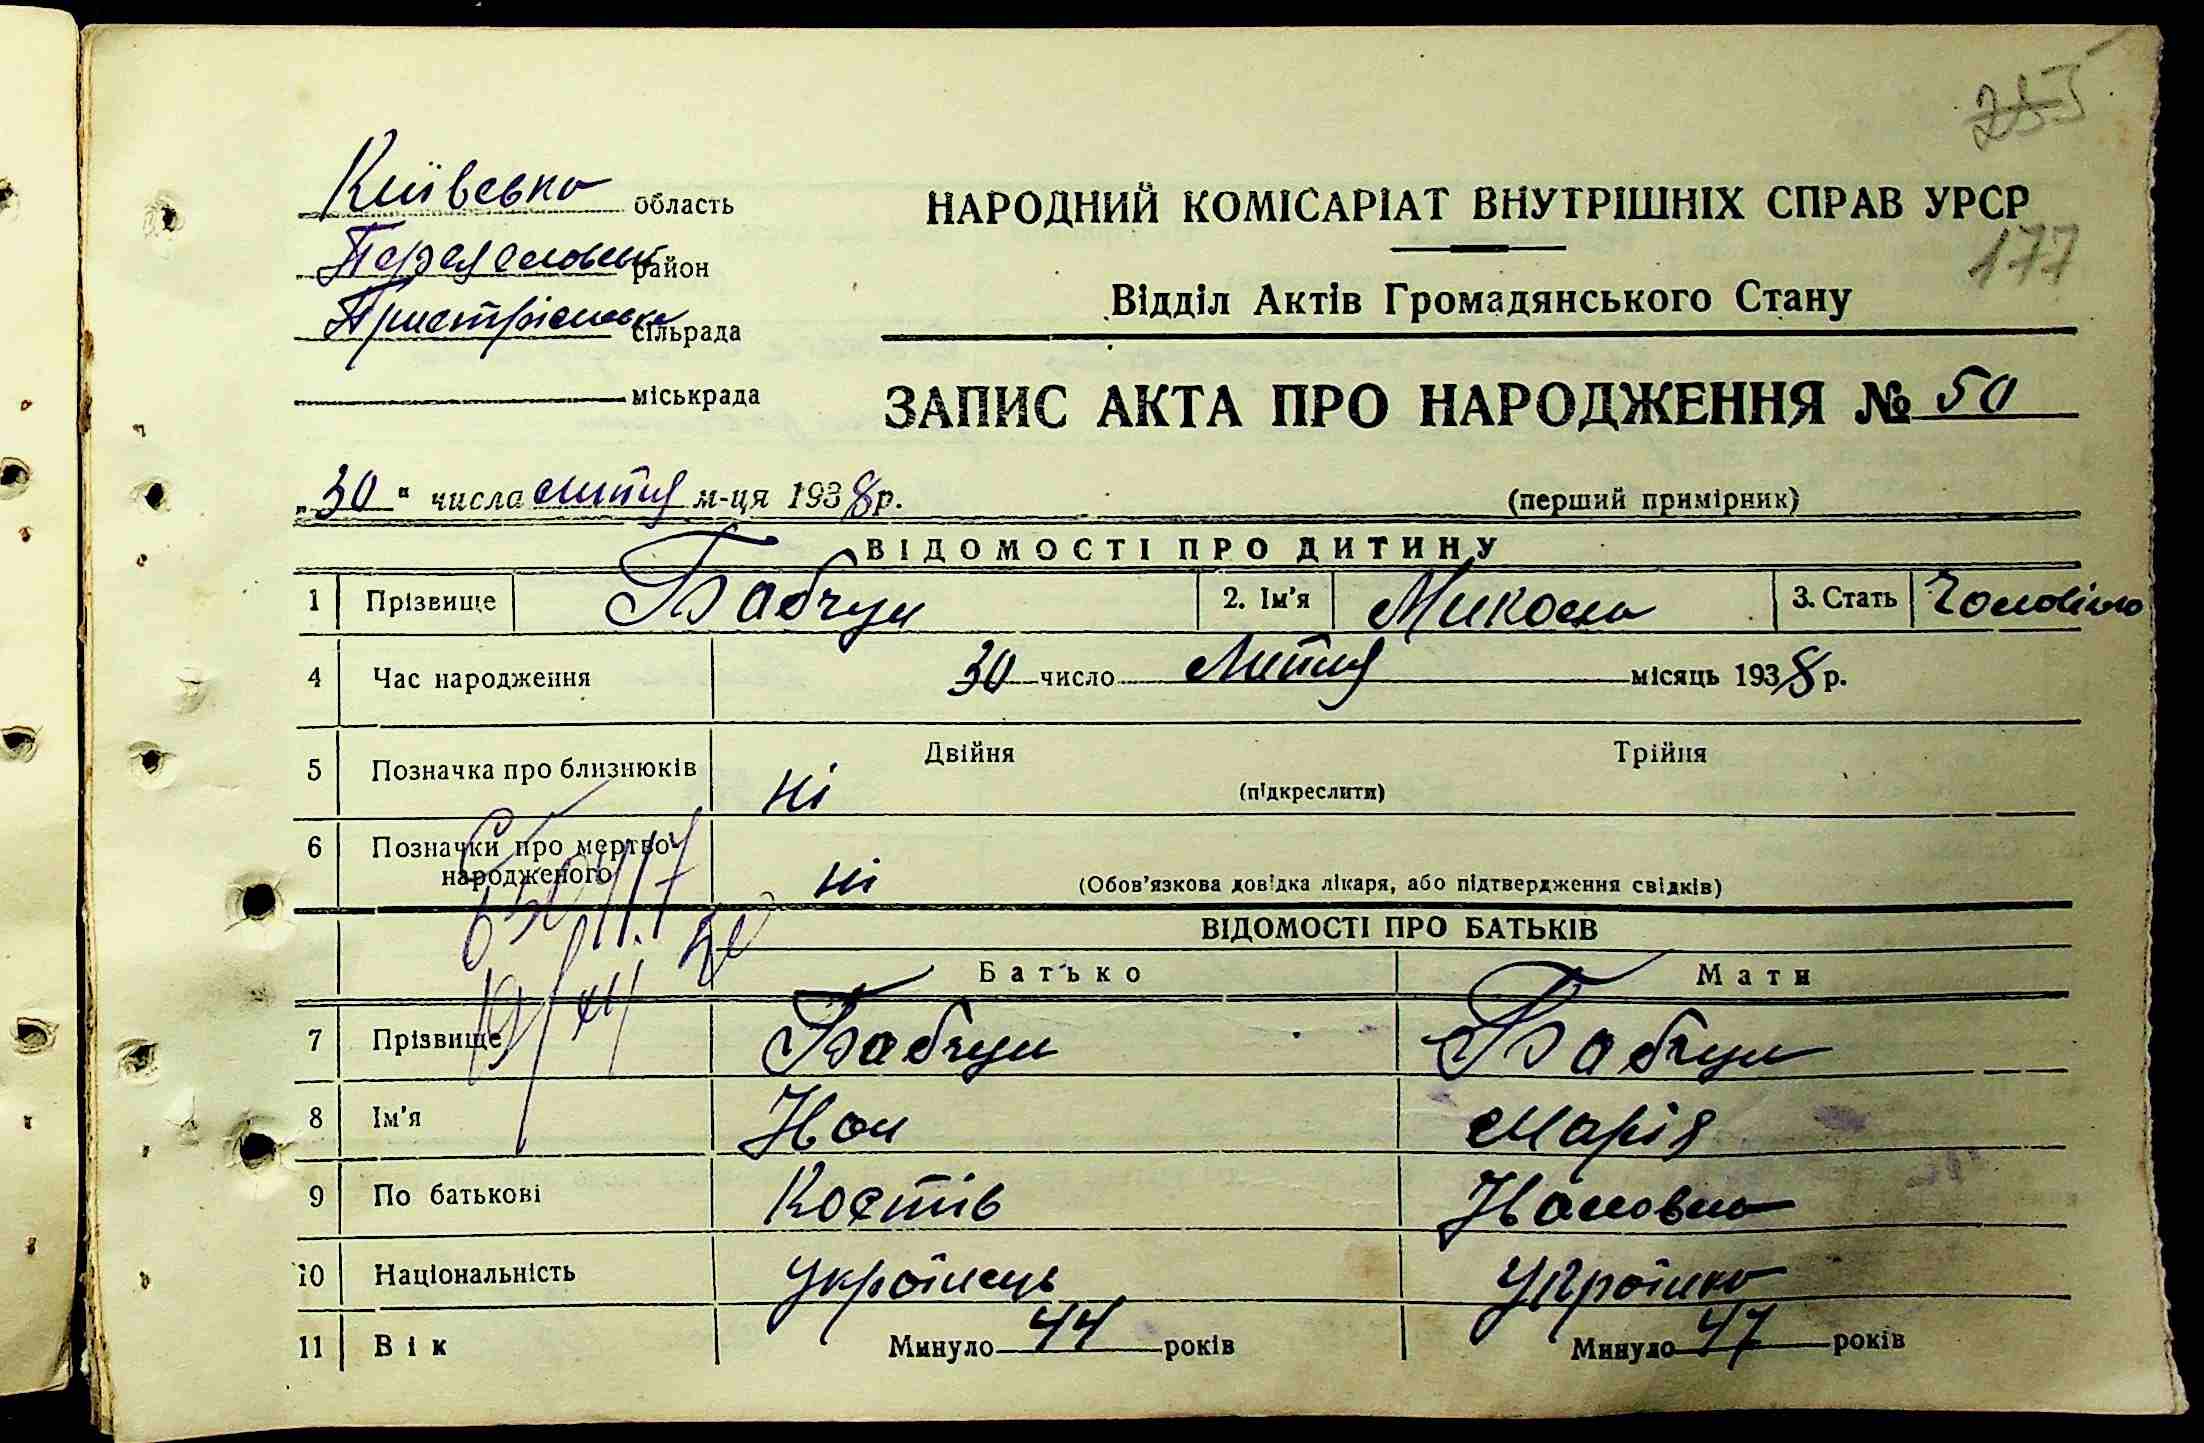 285
Київська область
НАРОДНИЙ КОМІСАРІАТ ВНУТРІШНІХ СПРАВ УРСР
177
Переяславський район
Відділ Актів Громадянського Стану
сільрада
міськрада
ЗАПИС АКТА ПРО НАРОДЖЕННЯ № 50
„30" числа липня м-ця 1938р.
(перший примірник)
ВІДОМОСТІ ПРО ДИТИНУ
1 Прізвище Бабчун 2. Ім'я Микола 3. Стать
4 Час народження 30 число липня місяць 1938 р.
5 Позначка про близнюків ні Двійня Трійня
(підкреслити)
6 Позначки про мертво-
народженого ні (Обов'язкова довідка лікаря, або підтвердження свідків)
ВІДОМОСТІ ПРО БАТЬКІВ
Батько Мати
7 Прізвище Бабчун Бабчун
8 Ім'я Марія
9 По батькові Костів
10 Національність Українець Українка
11 Вік Минуло 44 років Минуло 47 років